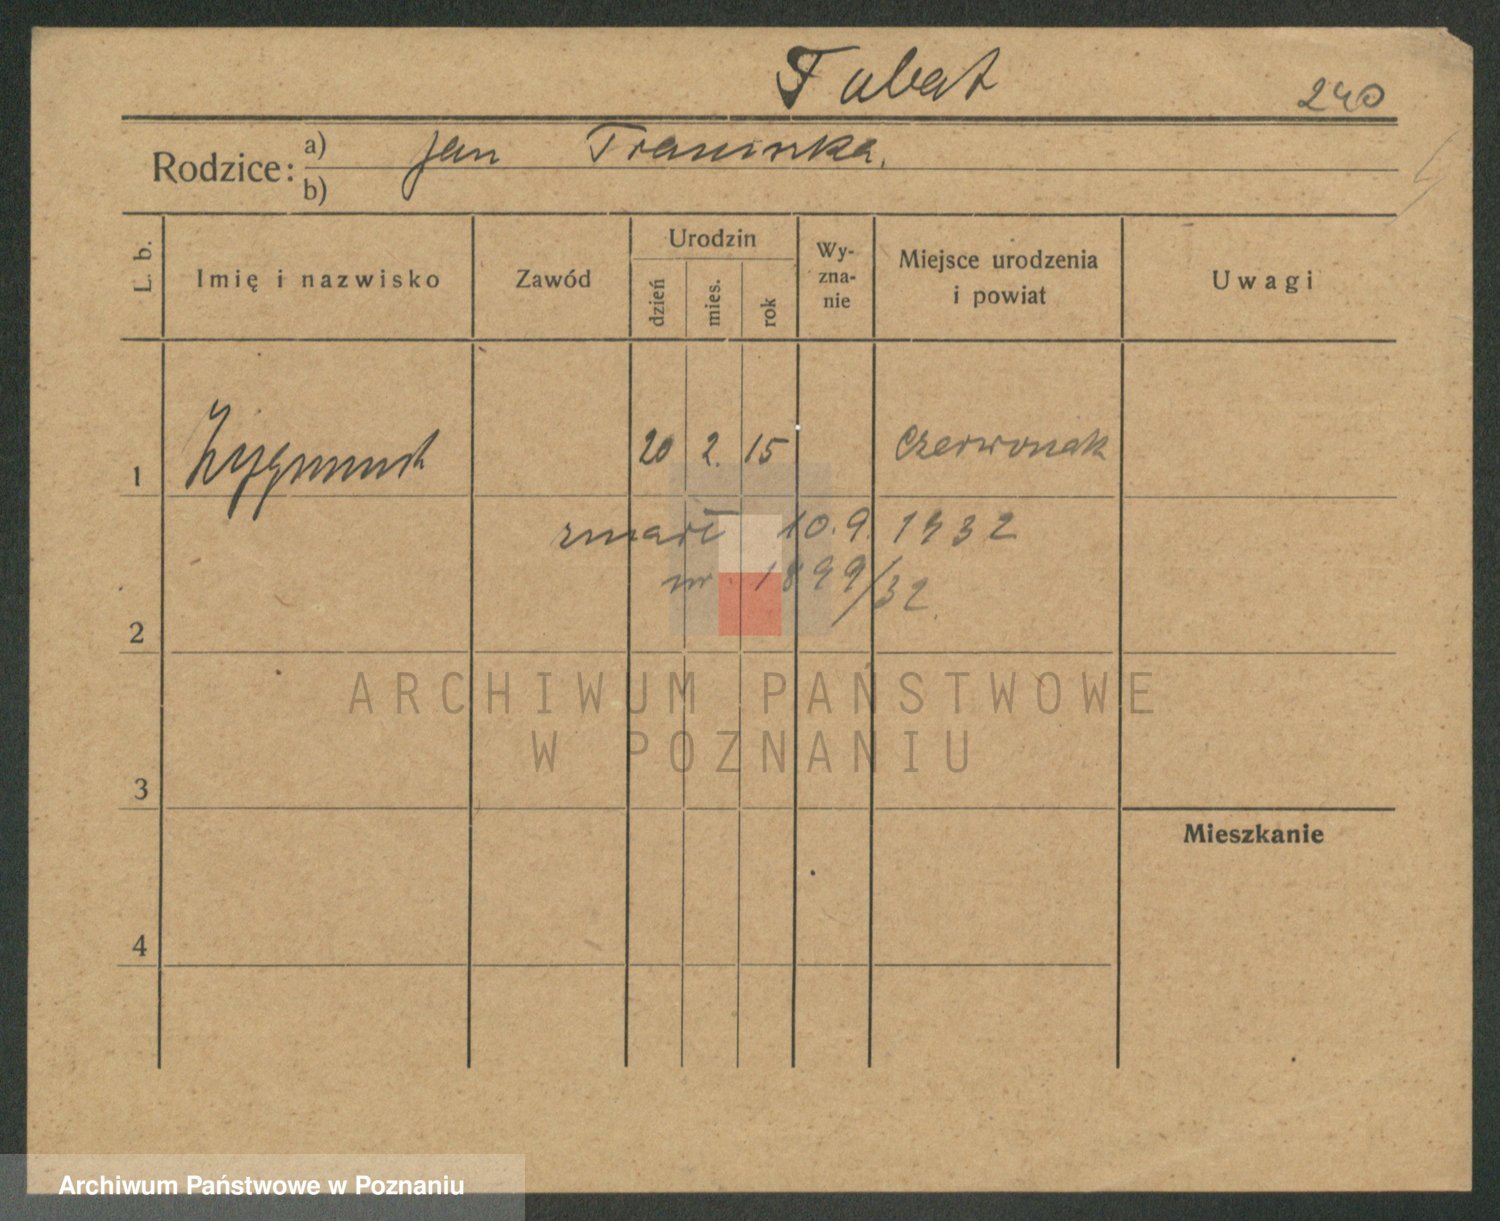 Tubat 240
Rodzice: a) Jan Traninka.
b)
L. b. Imię i nazwisko Zawód Urodzin dzień mies. rok Wy-zna-nie Miejsce urodzenia i powiat Uwagi
1 Zygmunt 20 2. 15 Czerwonak
zmarł 10.9. 1932
nr. 1899/32.
2
ARCHIWUM PAŃSTWOWE
W POZNANIU
3
Mieszkanie
4
Archiwum Państwowe w Poznaniu